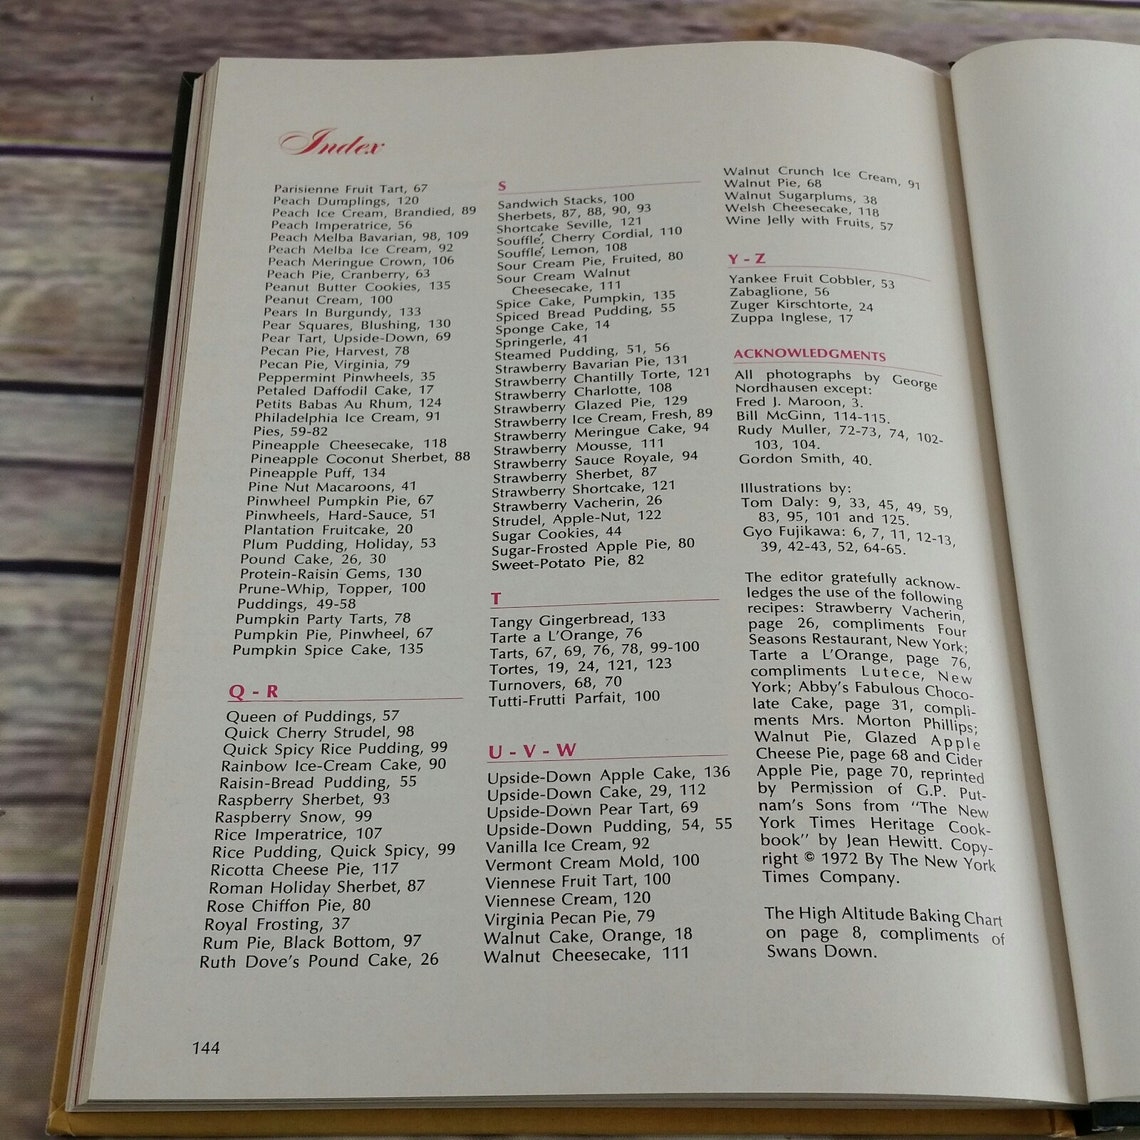 Index
Parisienne Fruit Tart, 67
Peach Dumplings, 120
Peach Ice Cream, Brandied, 89
Peach Imperatrice, 56
Peach Melba Bavarian, 98, 109
Peach Melba Ice Cream, 92
Peach Meringue Crown, 106
Peach Pie, Cranberry, 63
Peanut Butter Cookies, 135
Peanut Cream, 100
Pears In Burgundy, 133
Pear Squares, Blushing, 130
Pear Tart, Upside-Down, 69
Pecan Pie, Harvest, 78
Pecan Pie, Virginia, 79
Peppermint Pinwheels, 35
Petaled Daffodil Cake, 17
Petits Babas Au Rhum, 124
Philadelphia Ice Cream, 91
Pies, 59-82
Pineapple Cheesecake, 118
Pineapple Coconut Sherbet, 88
Pineapple Puff, 134
Pine Nut Macaroons, 41
Pinwheel Pumpkin Pie, 67
Pinwheels, Hard-Sauce, 51
Plantation Fruitcake, 20
Plum Pudding, Holiday, 53
Pound Cake, 26, 30
Protein-Raisin Gems, 130
Prune-Whip, Topper, 100
Puddings, 49-58
Pumpkin Party Tarts, 78
Pumpkin Pie, Pinwheel, 67
Pumpkin Spice Cake, 135
Q - R
Queen of Puddings, 57
Quick Cherry Strudel, 98
Quick Spicy Rice Pudding, 99
Rainbow Ice-Cream Cake, 90
Raisin-Bread Pudding, 55
Raspberry Sherbet, 93
Raspberry Snow, 99
Rice Imperatrice, 107
Rice Pudding, Quick Spicy, 99
Ricotta Cheese Pie, 117
Roman Holiday Sherbet, 87
Rose Chiffon Pie, 80
Royal Frosting, 37
Rum Pie, Black Bottom, 97
Ruth Dove's Pound Cake, 26
S
Sandwich Stacks, 100
Sherbets, 87, 88, 90, 93
Shortcake Seville, 121
Soufflé, Cherry Cordial, 110
Soufflé, Lemon, 108
Sour Cream Pie, Fruited, 80
Sour Cream Walnut
Cheesecake, 111
Spice Cake, Pumpkin, 135
Spiced Bread Pudding, 55
Sponge Cake, 14
Springerle, 41
Steamed Pudding, 51, 56
Strawberry Bavarian Pie, 131
Strawberry Chantilly Torte, 121
Strawberry Charlotte, 108
Strawberry Glazed Pie, 129
Strawberry Ice Cream, Fresh, 89
Strawberry Meringue Cake, 94
Strawberry Mousse, 111
Strawberry Sauce Royale, 94
Strawberry Sherbet, 87
Strawberry Shortcake, 121
Strawberry Vacherin, 26
Strudel, Apple-Nut, 122
Sugar Cookies, 44
Sugar-Frosted Apple Pie, 80
Sweet-Potato Pie, 82
T
Tangy Gingerbread, 133
Tarte a L'Orange, 76
Tarts, 67, 69, 76, 78, 99-100
Tortes, 19, 24, 121, 123
Turnovers, 68, 70
Tutti-Frutti Parfait, 100
U - V - W
Upside-Down Apple Cake, 136
Upside-Down Cake, 29, 112
Upside-Down Pear Tart, 69
Upside-Down Pudding, 54, 55
Vanilla Ice Cream, 92
Vermont Cream Mold, 100
Viennese Fruit Tart, 100
Viennese Cream, 120
Virginia Pecan Pie, 79
Walnut Cake, Orange, 18
Walnut Cheesecake, 111
Walnut Crunch Ice Cream, 91
Walnut Pie, 68
Walnut Sugarplums, 38
Welsh Cheesecake, 118
Wine Jelly with Fruits, 57
Y - Z
Yankee Fruit Cobbler, 53
Zabaglione, 56
Zuger Kirschtorte, 24
Zuppa Inglese, 17
ACKNOWLEDGMENTS
All photographs by George
Nordhausen except:
Fred J. Maroon, 3.
Bill McGinn, 114-115.
Rudy Muller, 72-73, 74, 102-
103, 104.
Gordon Smith, 40.
Illustrations by:
Tom Daly: 9, 33, 45, 49, 59,
83, 95, 101 and 125.
Gyo Fujikawa: 6, 7, 11, 12-13,
39, 42-43, 52, 64-65.
The editor gratefully acknow-
ledges the use of the following
recipes: Strawberry Vacherin,
page 26, compliments Four
Seasons Restaurant, New York;
Tarte a L'Orange, page 76,
compliments Lutece, New
York; Abby's Fabulous Choco-
late Cake, page 31, compli-
ments Mrs. Morton Phillips;
Walnut Pie, Glazed Apple
Cheese Pie, page 68 and Cider
Apple Pie, page 70, reprinted
by Permission of G.P. Put-
nam's Sons from "The New
York Times Heritage Cook-
book" by Jean Hewitt. Copy-
right © 1972 By The New York
Times Company.
The High Altitude Baking Chart
on page 8, compliments of
Swans Down.
144